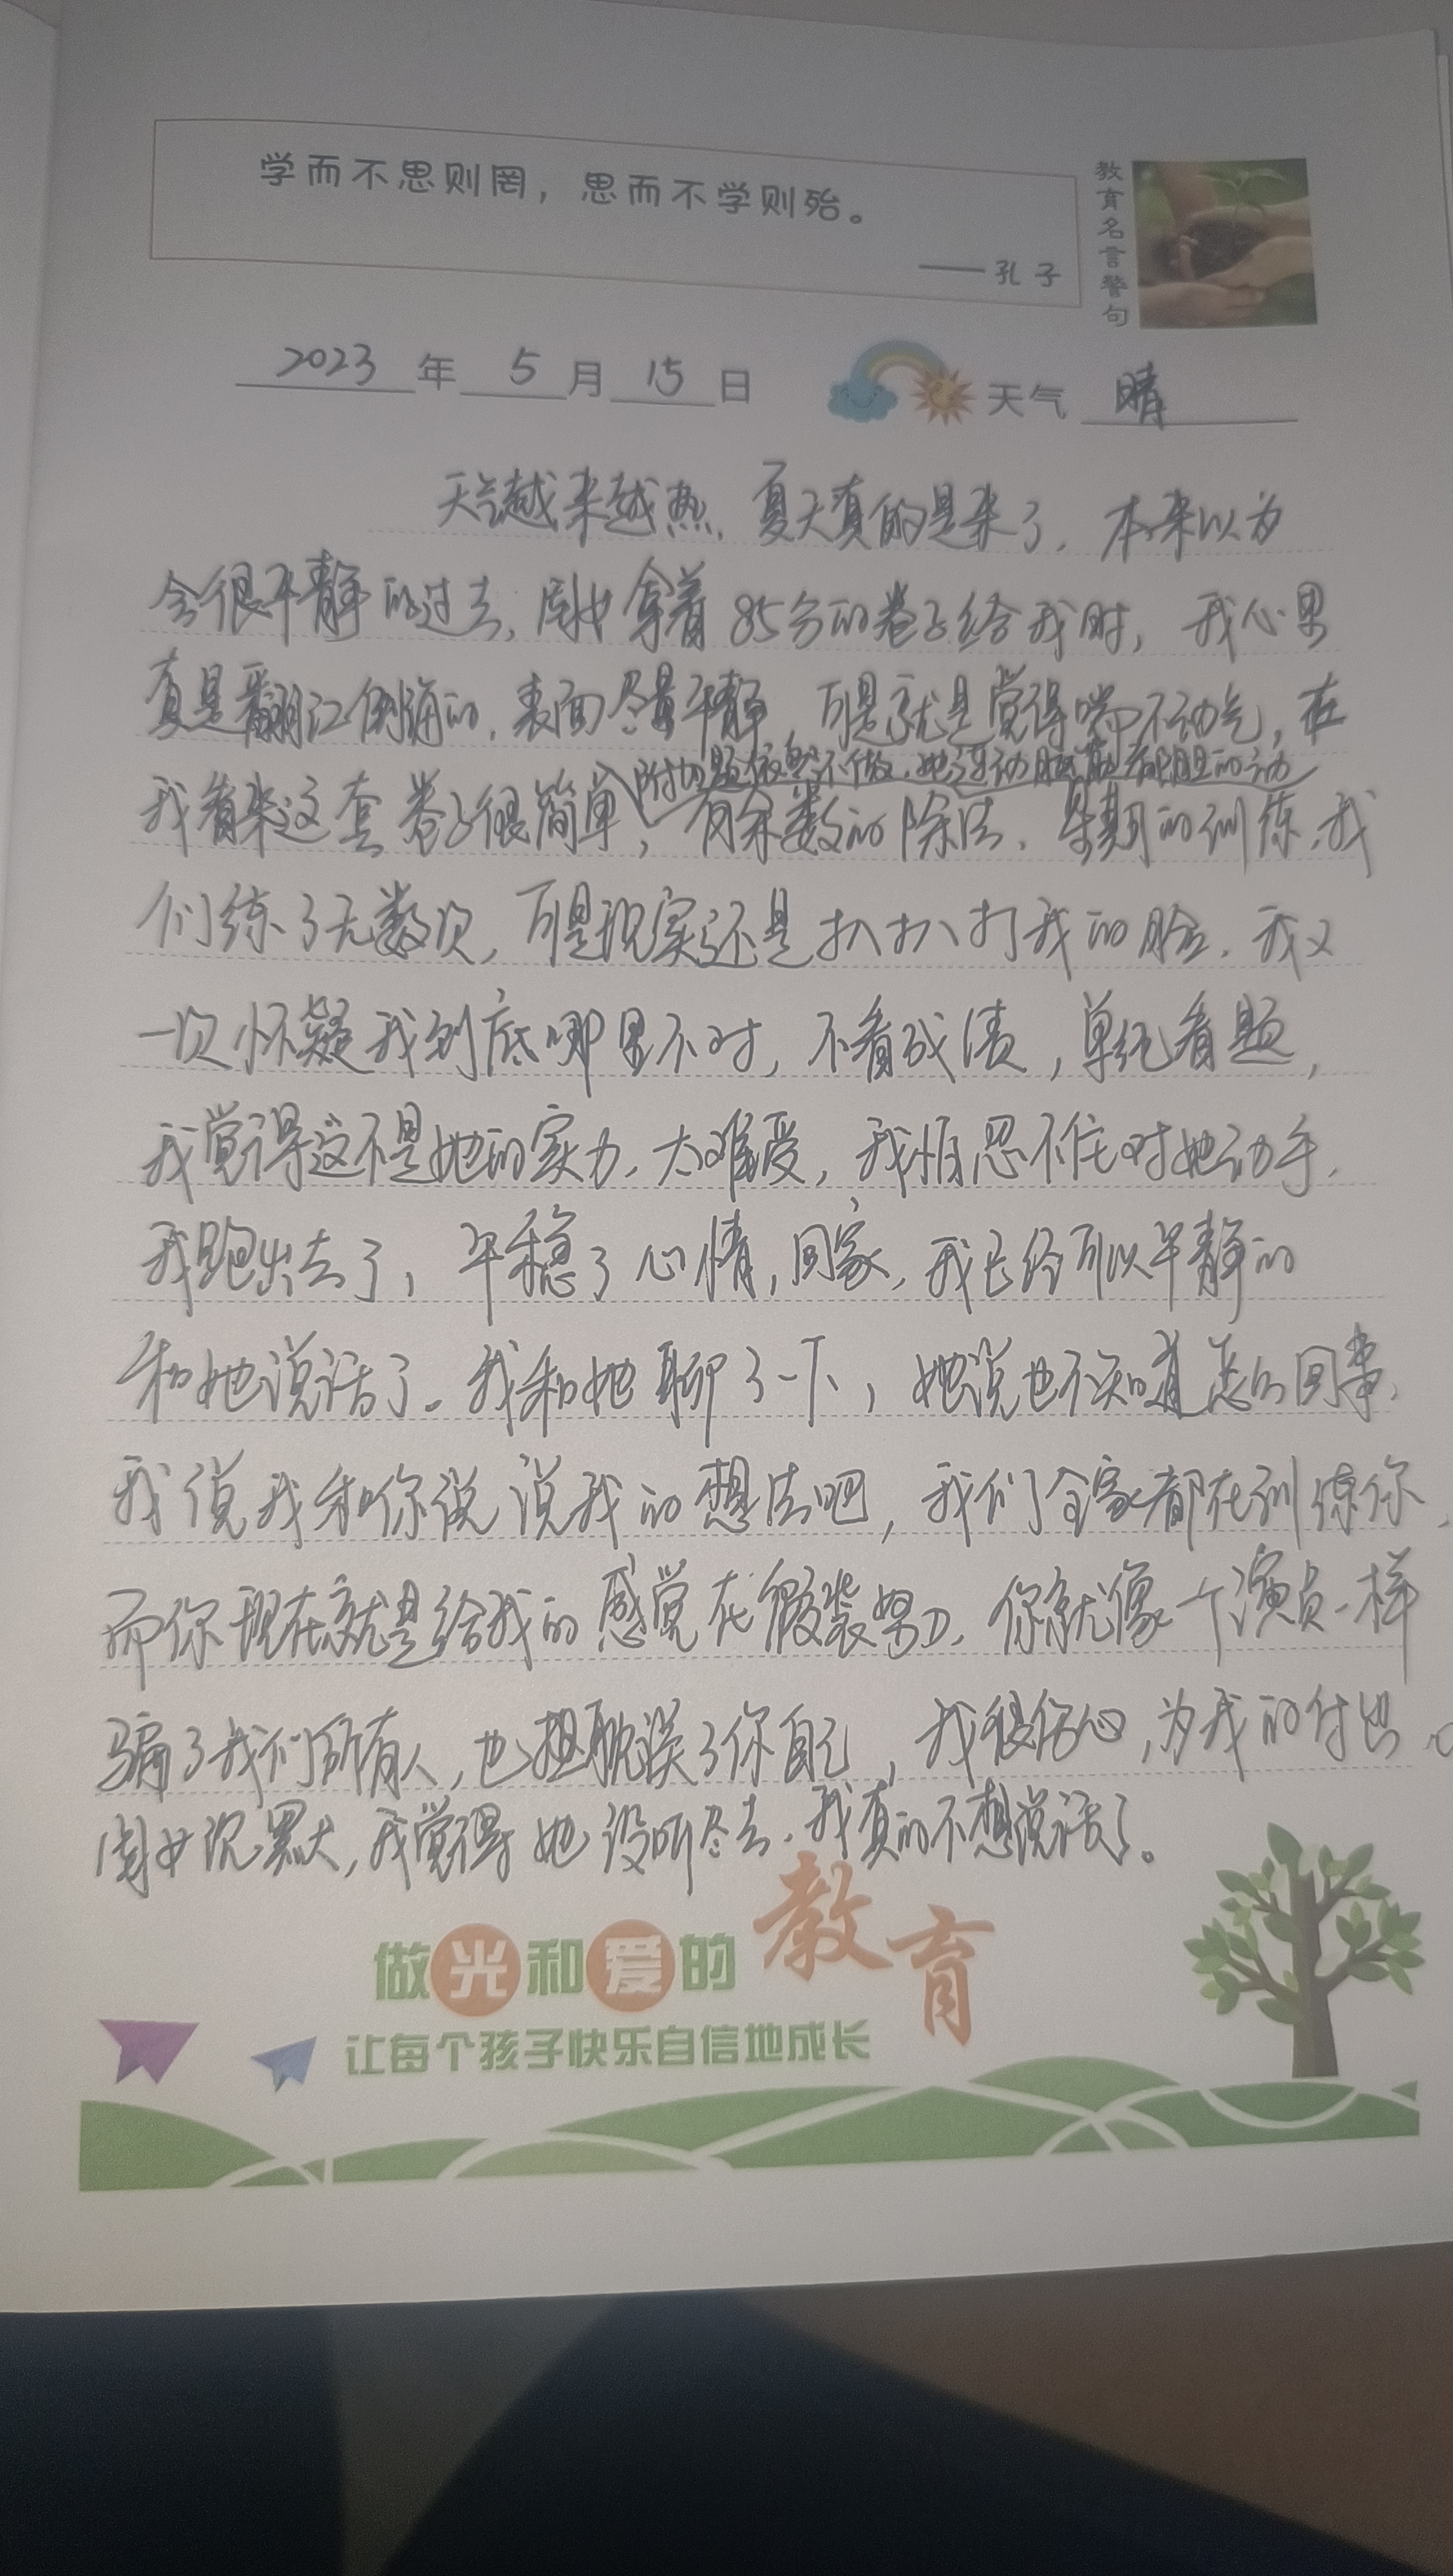 学而不思则罔，思而不学则殆。
——孔子
教育名言警句
2023年5月15日 天气 晴
天气越来越热，夏天真的是来了，本来以为
会很平静的过去，闺女拿着85分的卷子给我时，我心里
真是翻江倒海的，表面尽量平静，可是就是觉得喘不动气，在
附加题依然不做，她连动脑筋都阻的动
我看来这套卷子很简单，有余数的除法，星期的训练，我
们练了无数次，可是现实还是扒扒打我的脸，我又
一次怀疑我到底哪里不对，不看成绩，单纯看题，
我觉得这不是她的实力，太难受，我怕忍不住对她动手，
我跑出去了，平稳了心情，回家，我已经可以平静的
和她说话了。我和她聊了一下，她说也不知道怎么回事，
我说我和你说说我的想法吧，我们全家都在训练你，
而你现在就是给我的感觉在假装努力，你就像一个演员一样
骗了我们所有人，也耽误了你自己，我很伤心，为我的付出。
闺女沉默，我觉得她没听尽去，我真的不想说话了。
做光和爱的教育
让每个孩子快乐自信地成长